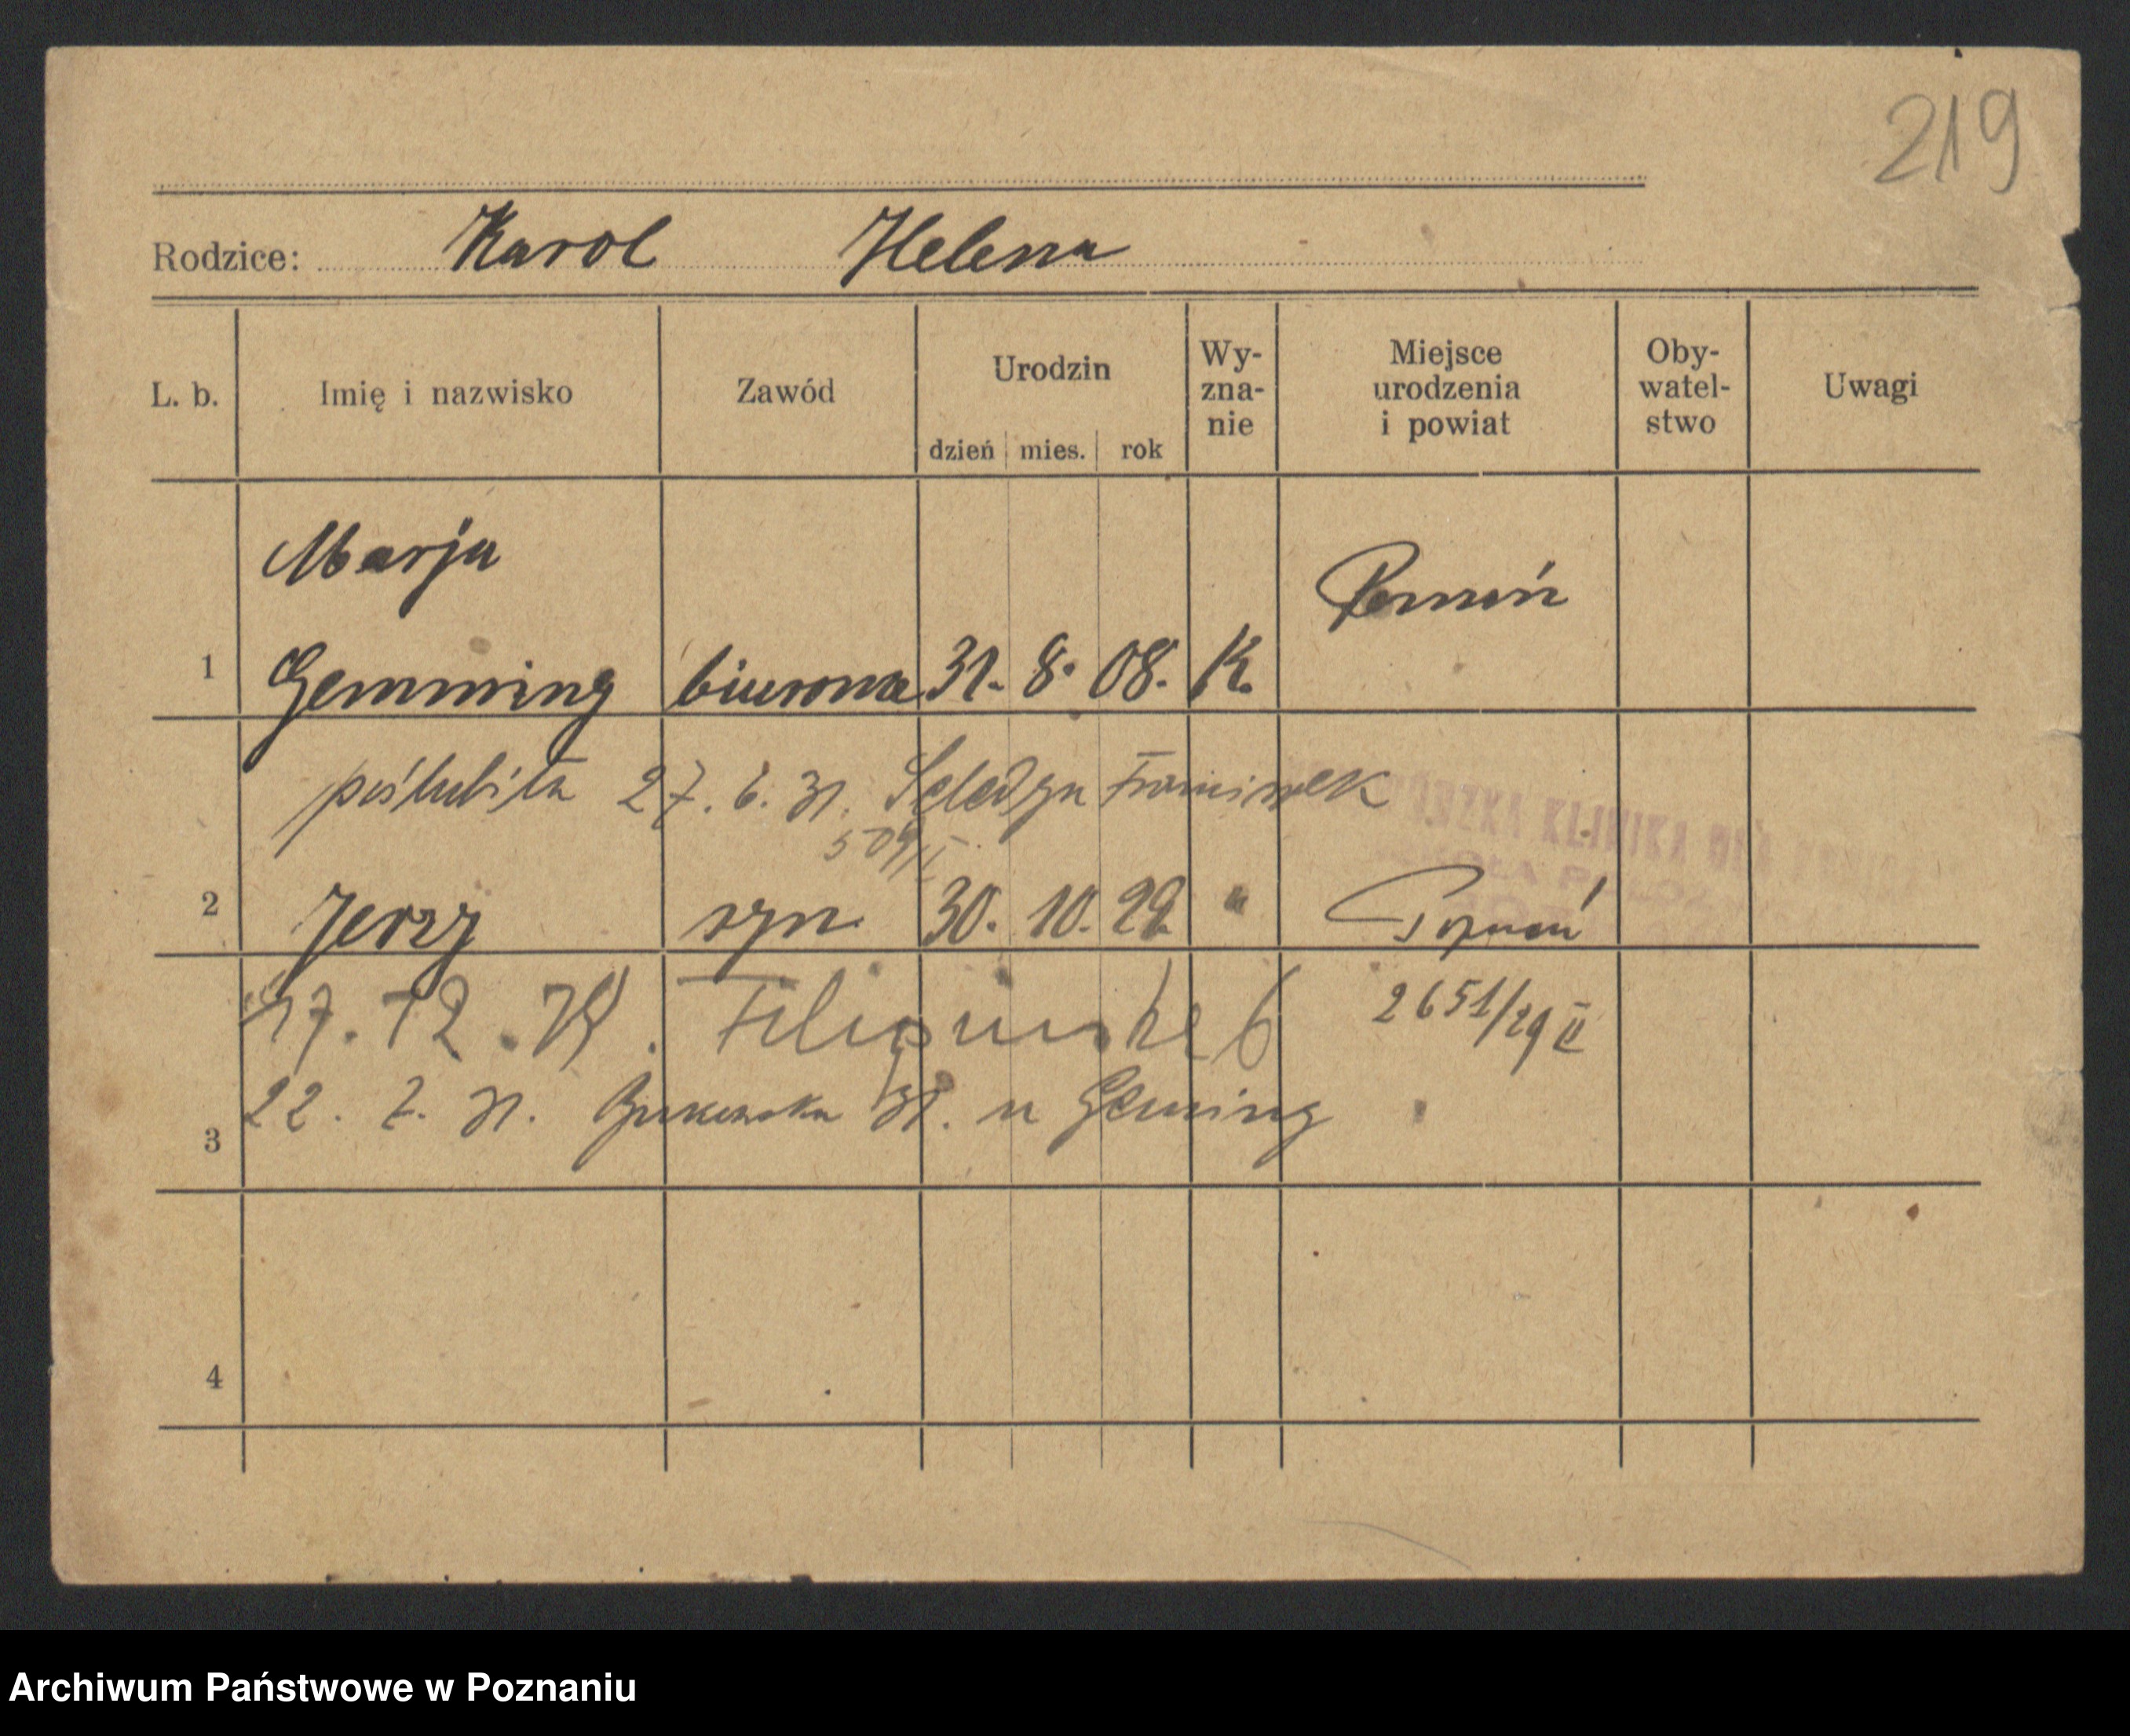 219
Rodzice: Karol Helena
L. b. Imię i nazwisko Zawód Urodzin dzień mies. rok Wy-zna-nie Miejsce urodzenia i powiat Oby-watel-stwo Uwagi
Marja
Poznań
1 Gemming biurowa 31. 8. 08. K.
poślubiła 27. 6. 31. Franciszek
509/
KLINIKA
2 Jerzy syn 30. 10. 29 " Poznań
17. 12. 2651/29 II
22. 7. 31. Bukowska 31. u Gemming
3
4
Archiwum Państwowe w Poznaniu